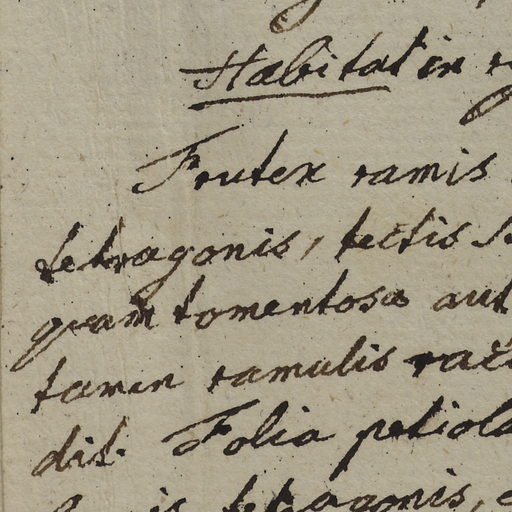 Habitat in
Frutex ramis
tetragonis, tectis
quam tomentosa aut
tamen ramulis
dit. Folia petiola
tetragonis,